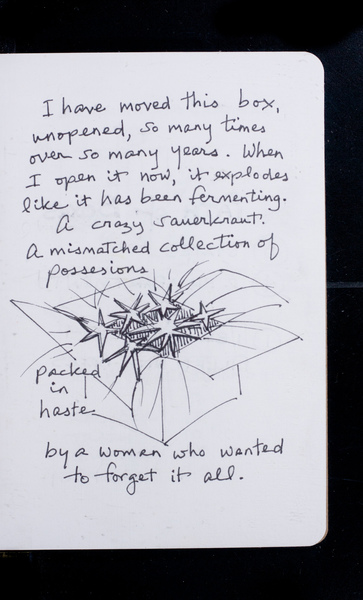 I have moved this box,
unopened, so many times
over so many years. When
I open it now, it explodes
like it has been fermenting.
A crazy sauerkraut.
A mismatched collection of
possesions
packed
in
haste
by a woman who wanted
to forget it all.